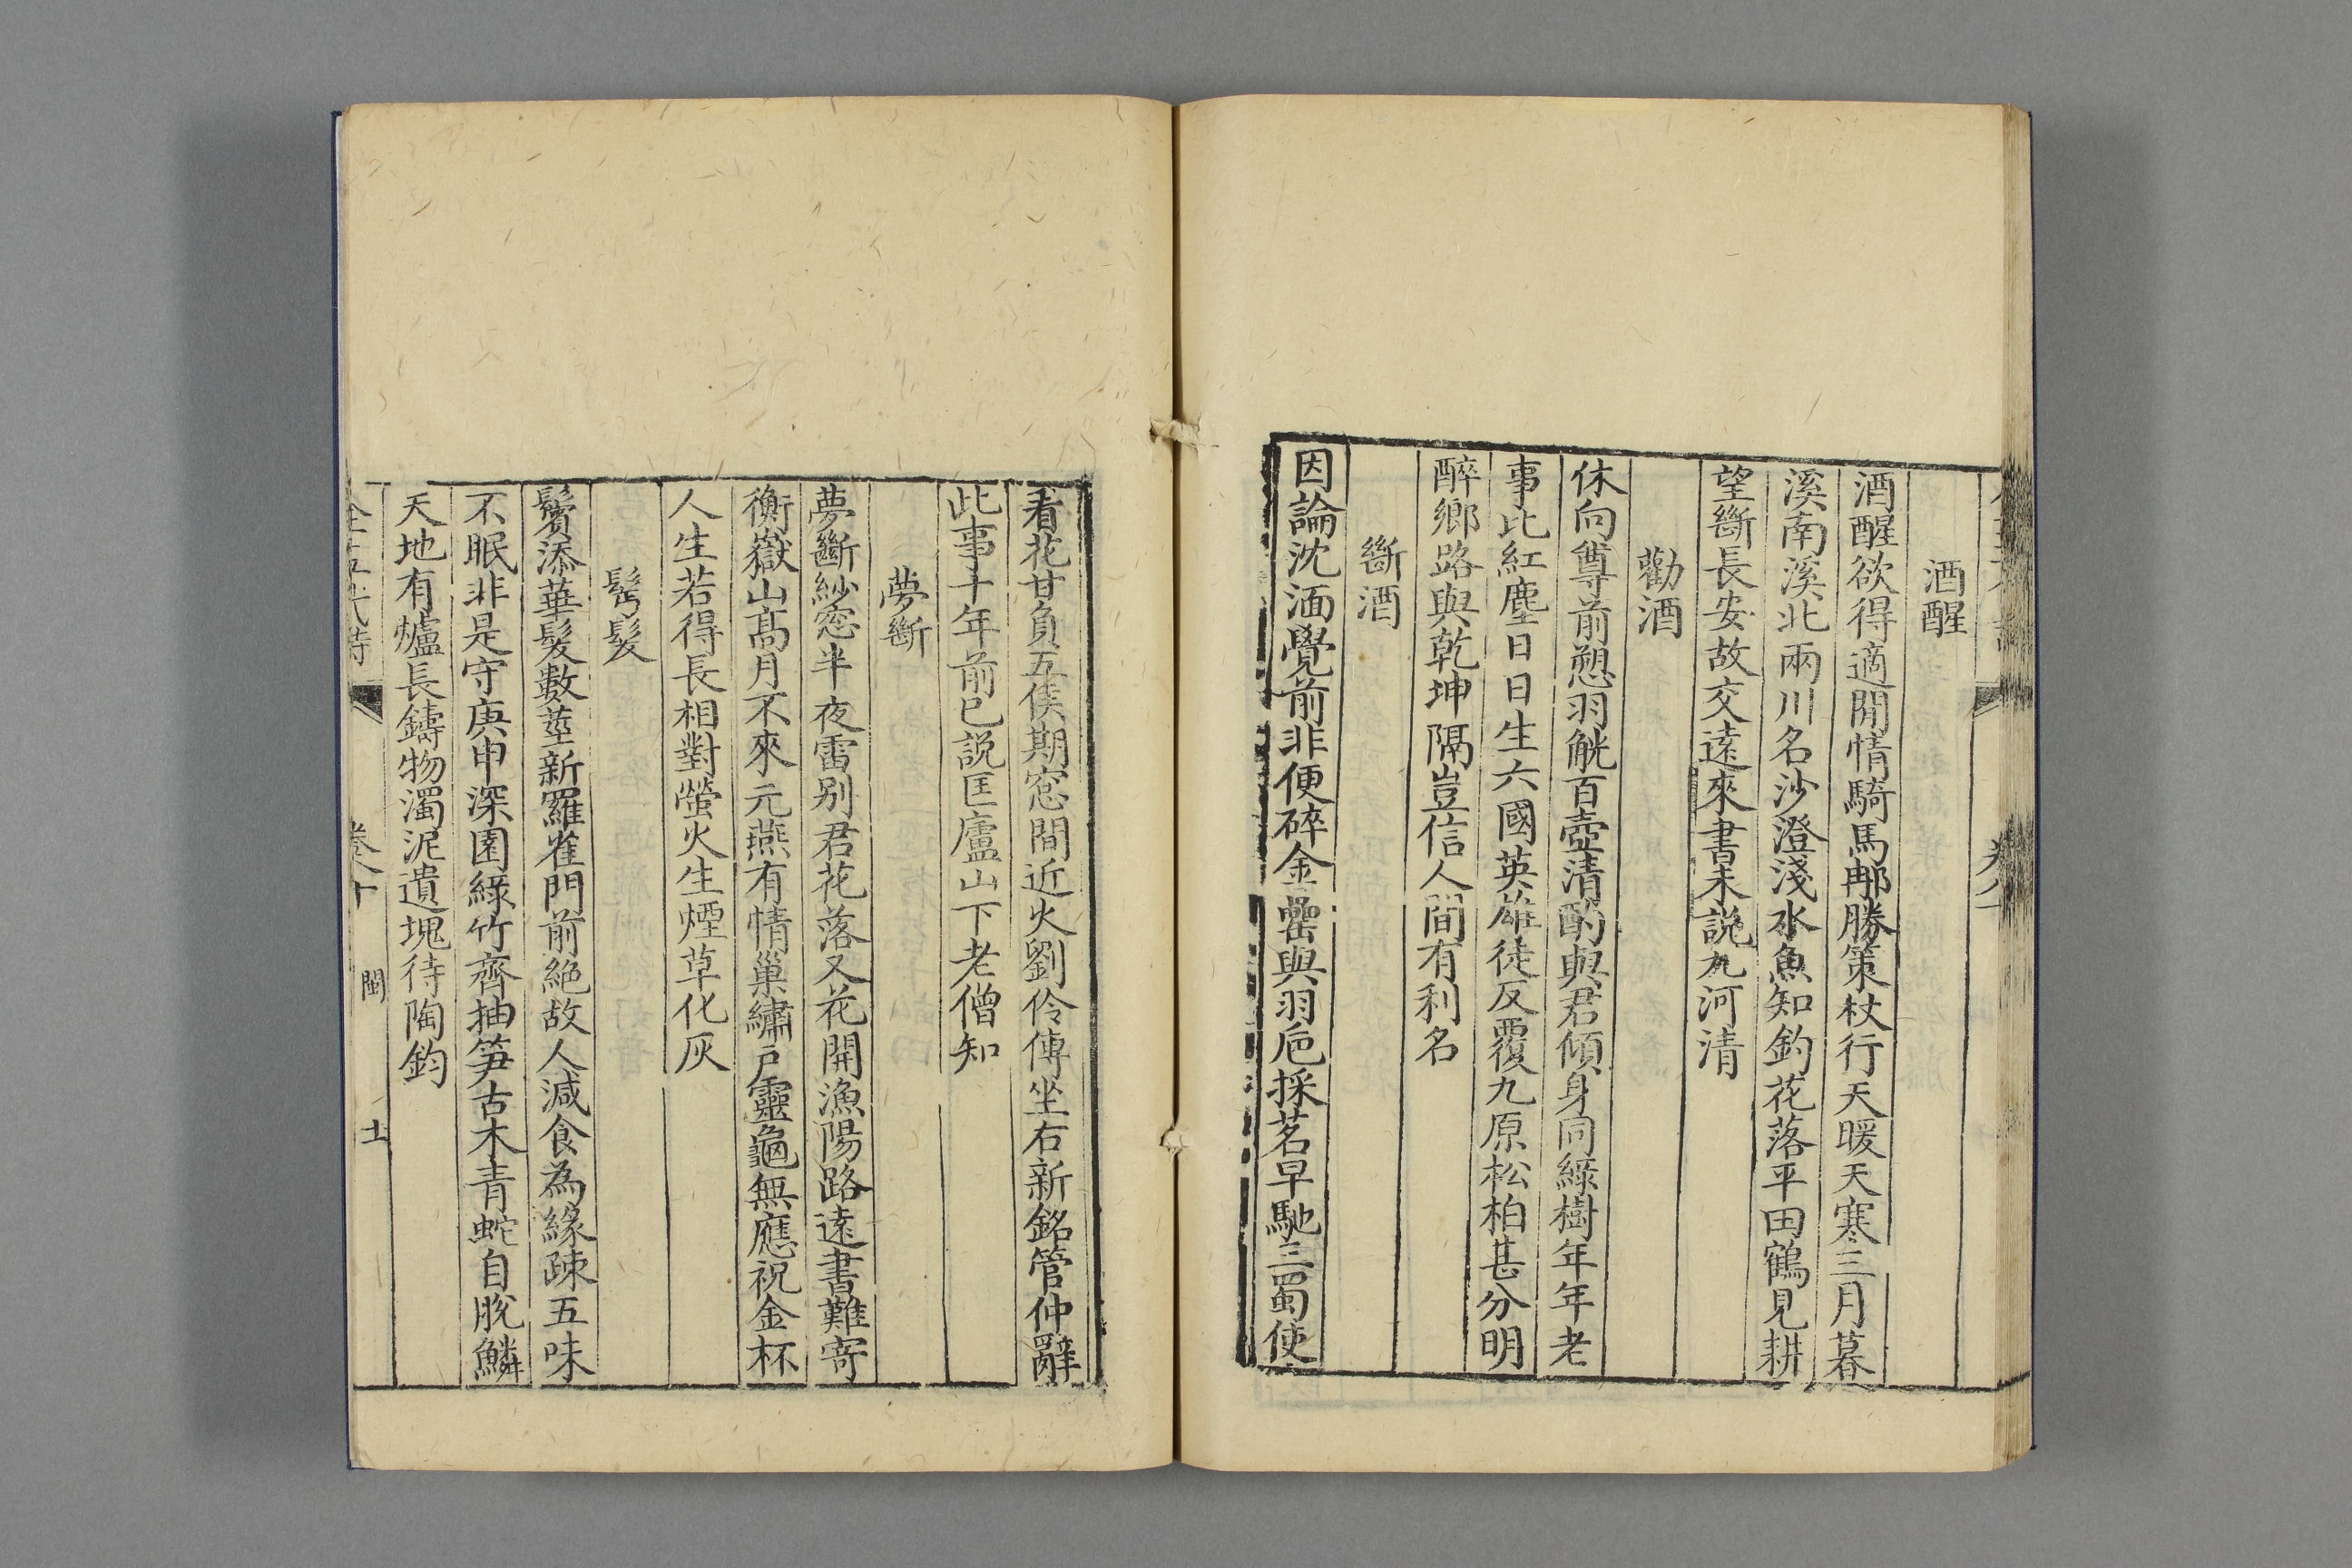 酒醒
酒醒欲得適閒情騎馬那勝策杖行天暖天寒三月暮
溪南溪北兩川名沙澄淺水魚知釣花落平田鶴見耕
望斷長安故交遠來書未說九河清
勸酒
休向尊前愬羽觥百壺清酌與君傾身同綠樹年年老
事比紅塵日日生六國英雄徒反覆九原松柏甚分明
醉鄉路與乾坤隔豈信人間有利名
斷酒
因論沈湎覺前非便碎金罍與羽巵採茗早馳三蜀使
看花甘負五侯期窓間近火劉伶傳坐右新銘管仲辭
此事十年前已説匡廬山下老僧知
夢斷
夢斷紗窓半夜雷别君花落又花開漁陽路遠書難寄
衡嶽山髙月不來元燕有情巢繡戸靈龜無應祝金杯
人生若得長相對螢火生煙草化灰
髩髮
鬢添華髮數莖新羅雀門前絶故人減食為緣疎五味
不眠非是守庚申深園綠竹齊抽笋古木青蛇自脫鱗
天地有爐長鑄物濁泥遺塊待陶鈞
全五代詩 卷八十 閩 十一